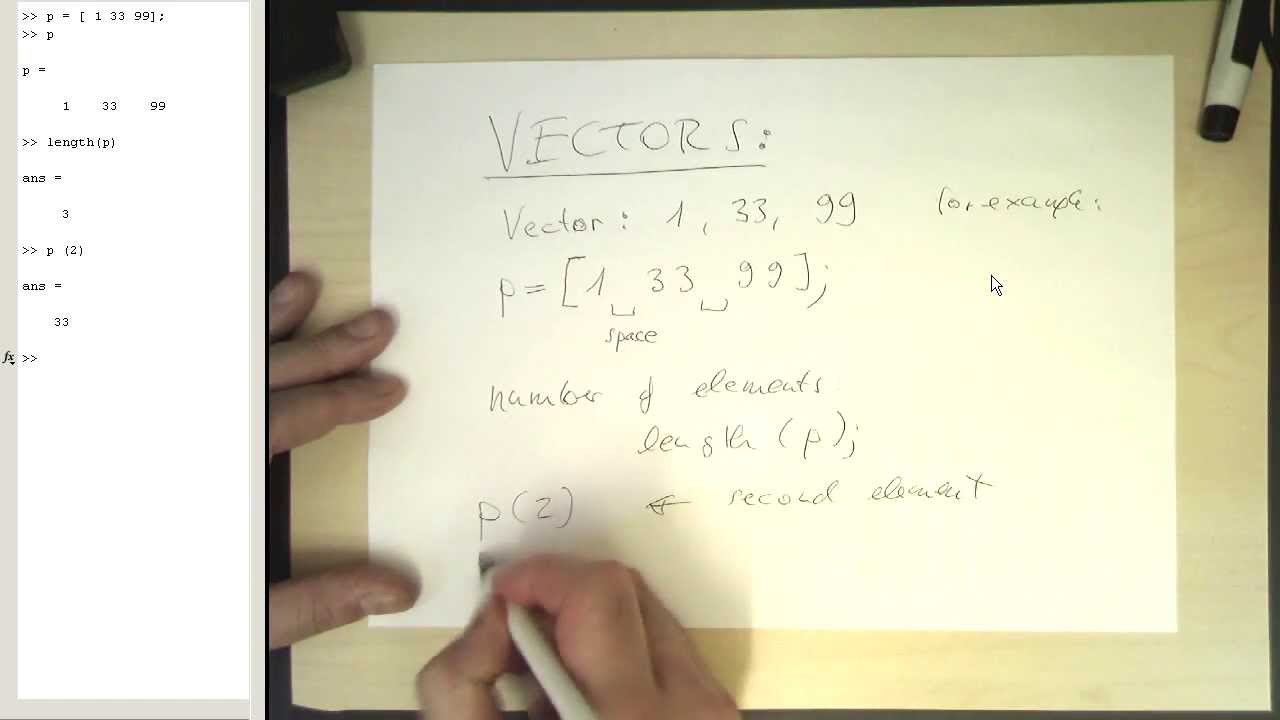 >> p = [ 1 33 99];
>> p
p =
1 33 99
>> length(p)
ans =
3
>> p (2)
ans =
33
fx >>
VECTORS:
Vector: 1, 33, 99 for example:
p = [1 33 99];
space
number of elements
length (p);
p(2) ← second element